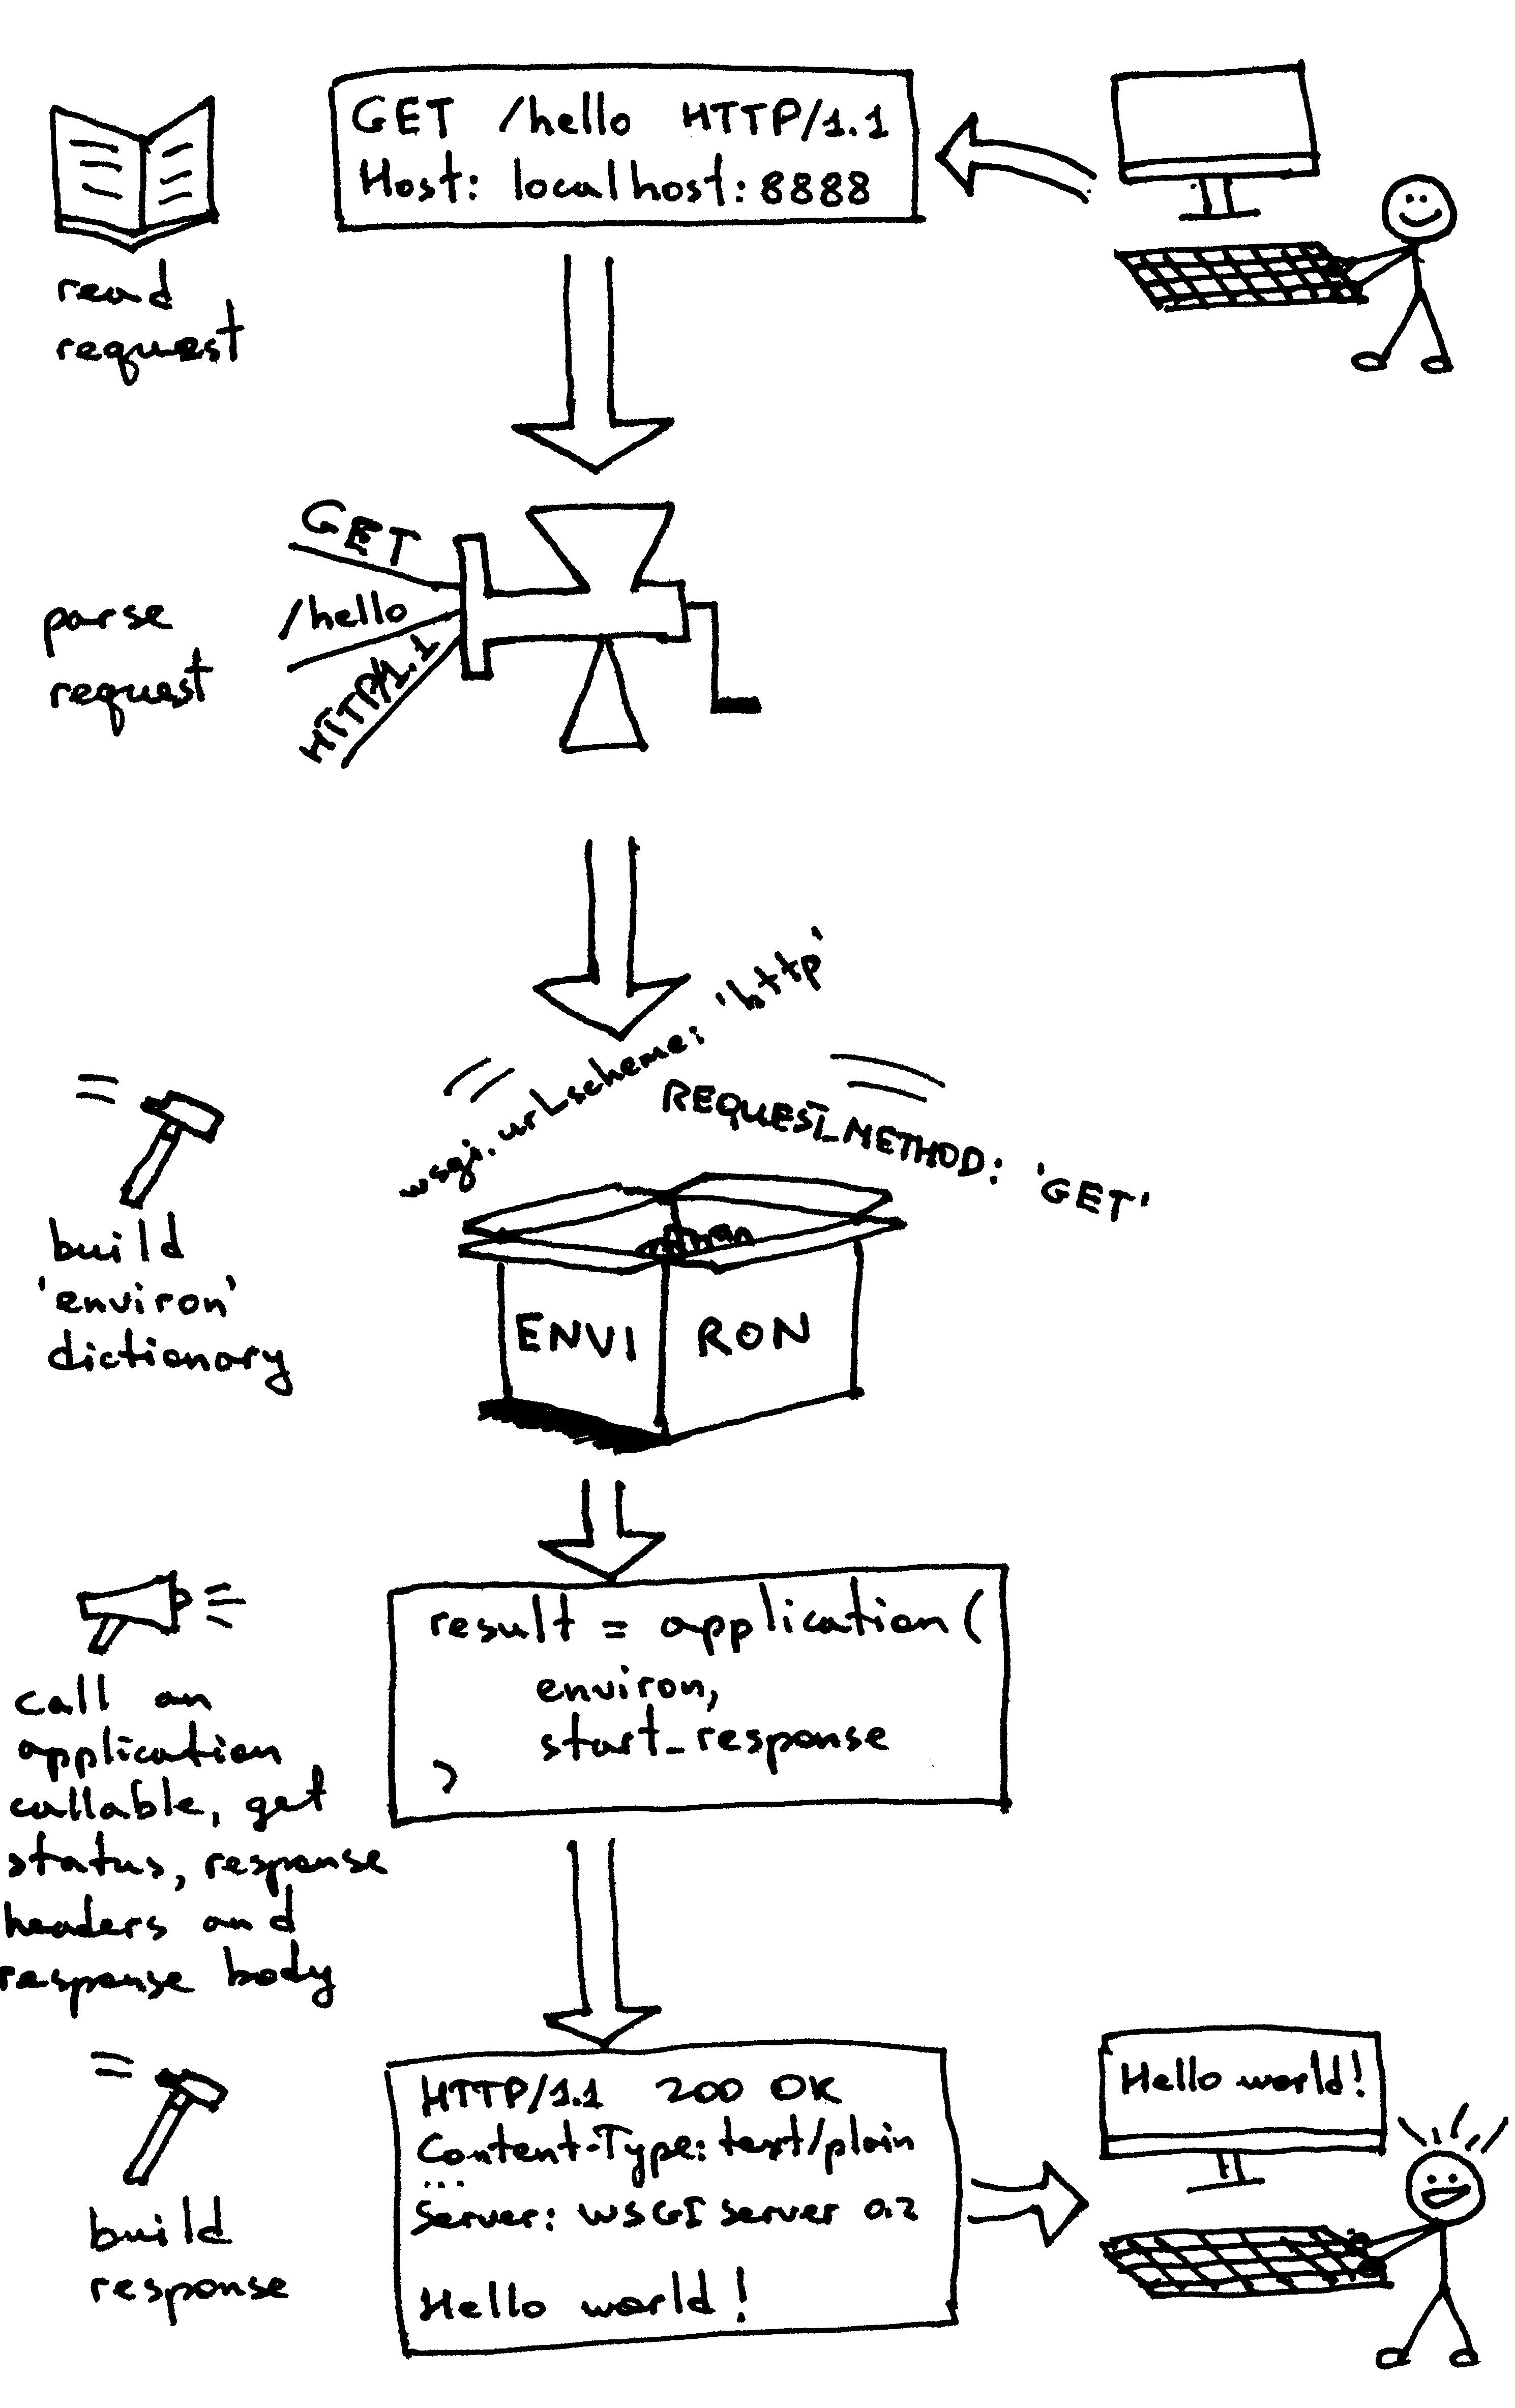 GET /hello HTTP/1.1
Host: localhost:8888
read
request
GET
/hello
HTTP/1.1
parse
request
wsgi.url_scheme: 'http'
REQUEST_METHOD: 'GET'
build
'environ'
dictionary
ENVI RON
result = application(
environ,
start_response
)
call an
application
callable, get
status, response
headers and
response body
HTTP/1.1 200 OK
Content-Type: text/plain
...
Server: WSGIServer 0.2
Hello world!
build
response
Hello world!